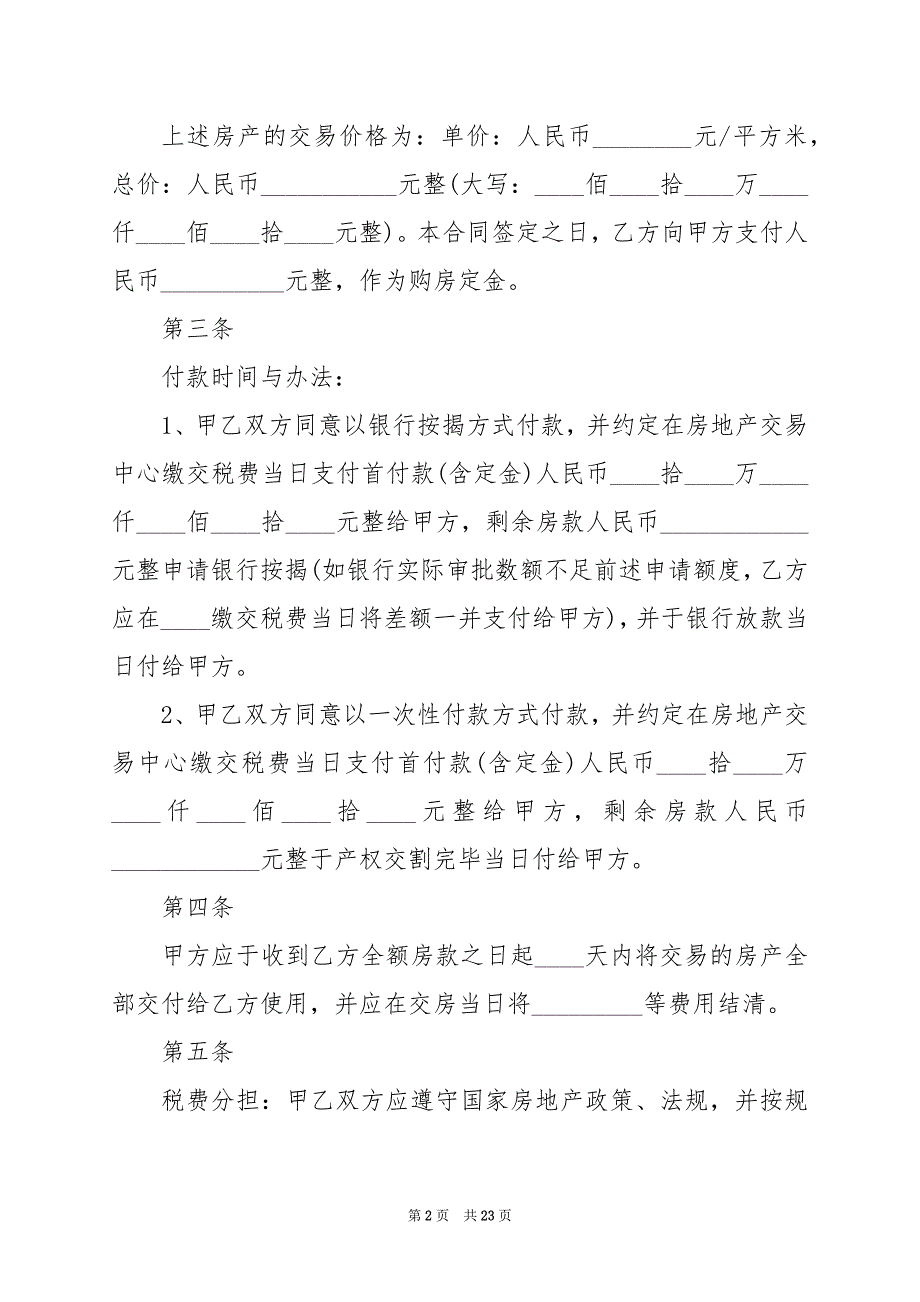 上述房产的交易价格为：单价：人民币________元/平方米，
总价：人民币_____________元整(大写：____佰____拾____万____
仟____佰____拾____元整)。本合同签定之日，乙方向甲方支付人
民币__________元整，作为购房定金。
第三条
付款时间与办法：
1、甲乙双方同意以银行按揭方式付款，并约定在房地产交易
中心缴交税费当日支付首付款(含定金)人民币____拾____万____
仟____佰____拾____元整给甲方，剩余房款人民币____________
元整申请银行按揭(如银行实际审批数额不足前述申请额度，乙方
应在____缴交税费当日将差额一并支付给甲方)，并于银行放款当
日付给甲方。
2、甲乙双方同意以一次性付款方式付款，并约定在房地产交
易中心缴交税费当日支付首付款(含定金)人民币____拾____万
____仟____佰____拾____元整给甲方，剩余房款人民币
____________元整于产权交割完毕当日付给甲方。
第四条
甲方应于收到乙方全额房款之日起____天内将交易的房产全
部交付给乙方使用，并应在交房当日将_________等费用结清。
第五条
税费分担：甲乙双方应遵守国家房地产政策、法规，并按规
第 2 页 共 23 页